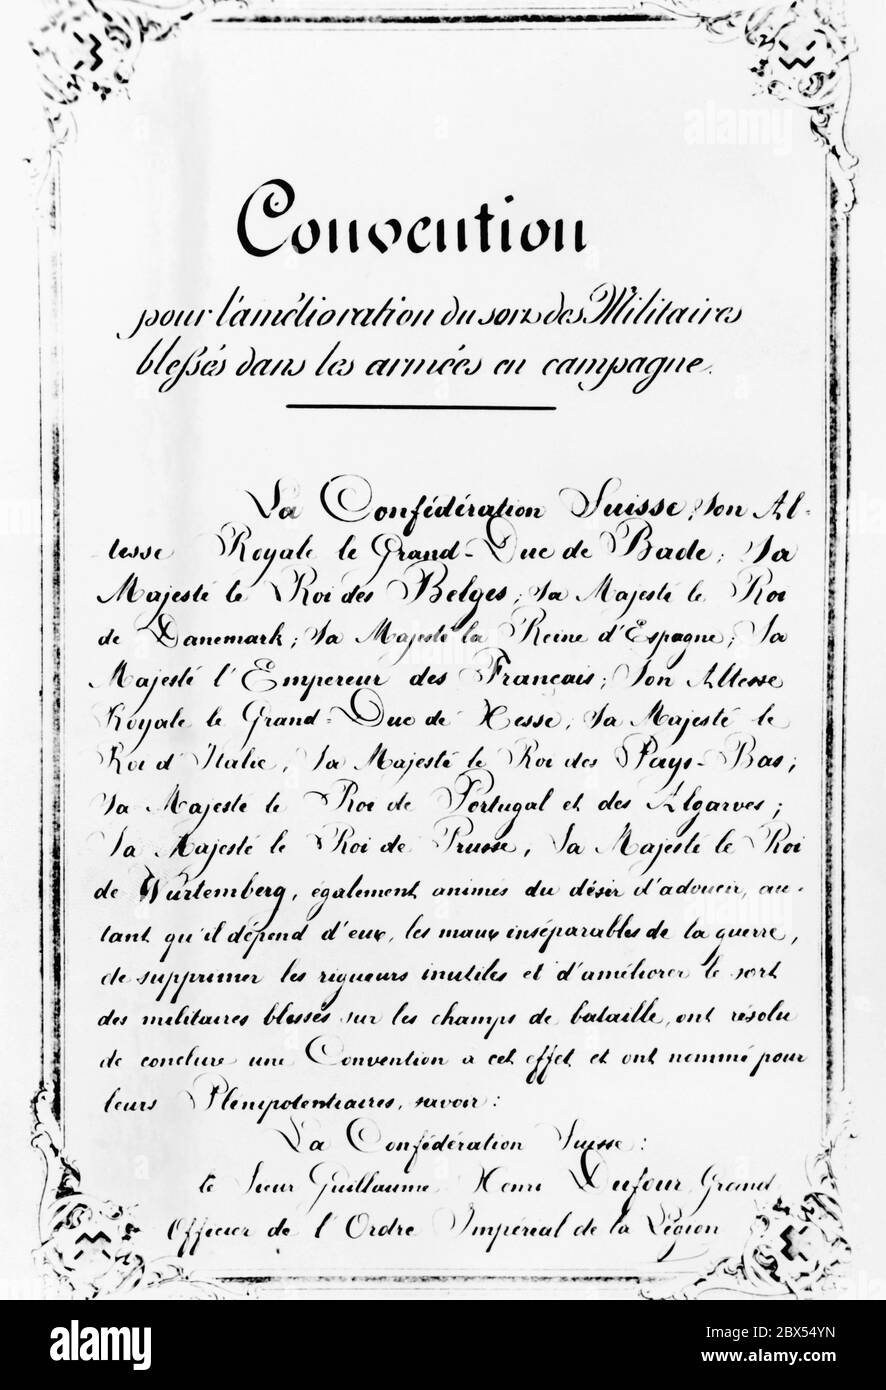 Convention
pour l'amélioration du sort des Militaires
blessés dans les armées en campagne.
La Confédération Suisse; Son Al-
tesse Royale le Grand-Duc de Bade; Sa
Majesté le Roi des Belges; Sa Majesté le Roi
de Danemark; Sa Majesté la Reine d'Espagne; Sa
Majesté l'Empereur des Français; Son Altesse
Royale le Grand-Duc de Hesse; Sa Majesté le
Roi d'Italie, Sa Majesté le Roi des Pays-Bas;
Sa Majesté le Roi de Portugal et des Algarves;
Sa Majesté le Roi de Prusse, Sa Majesté le Roi
de Wurtemberg, également animés du désir d'adoucir, au-
tant qu'il dépend d'eux, les maux inséparables de la guerre,
de supprimer les rigueurs inutiles et d'améliorer le sort
des militaires blessés sur les champs de bataille, ont résolu
de conclure une Convention à cet effet et ont nommé pour
leurs Plénipotentiaires, savoir:
La Confédération Suisse:
le Sieur Guillaume Henri Dufour, Grand
Officier de l'Ordre Impérial de la Légion
alamy
Image ID: 2BX54YN
www.alamy.com